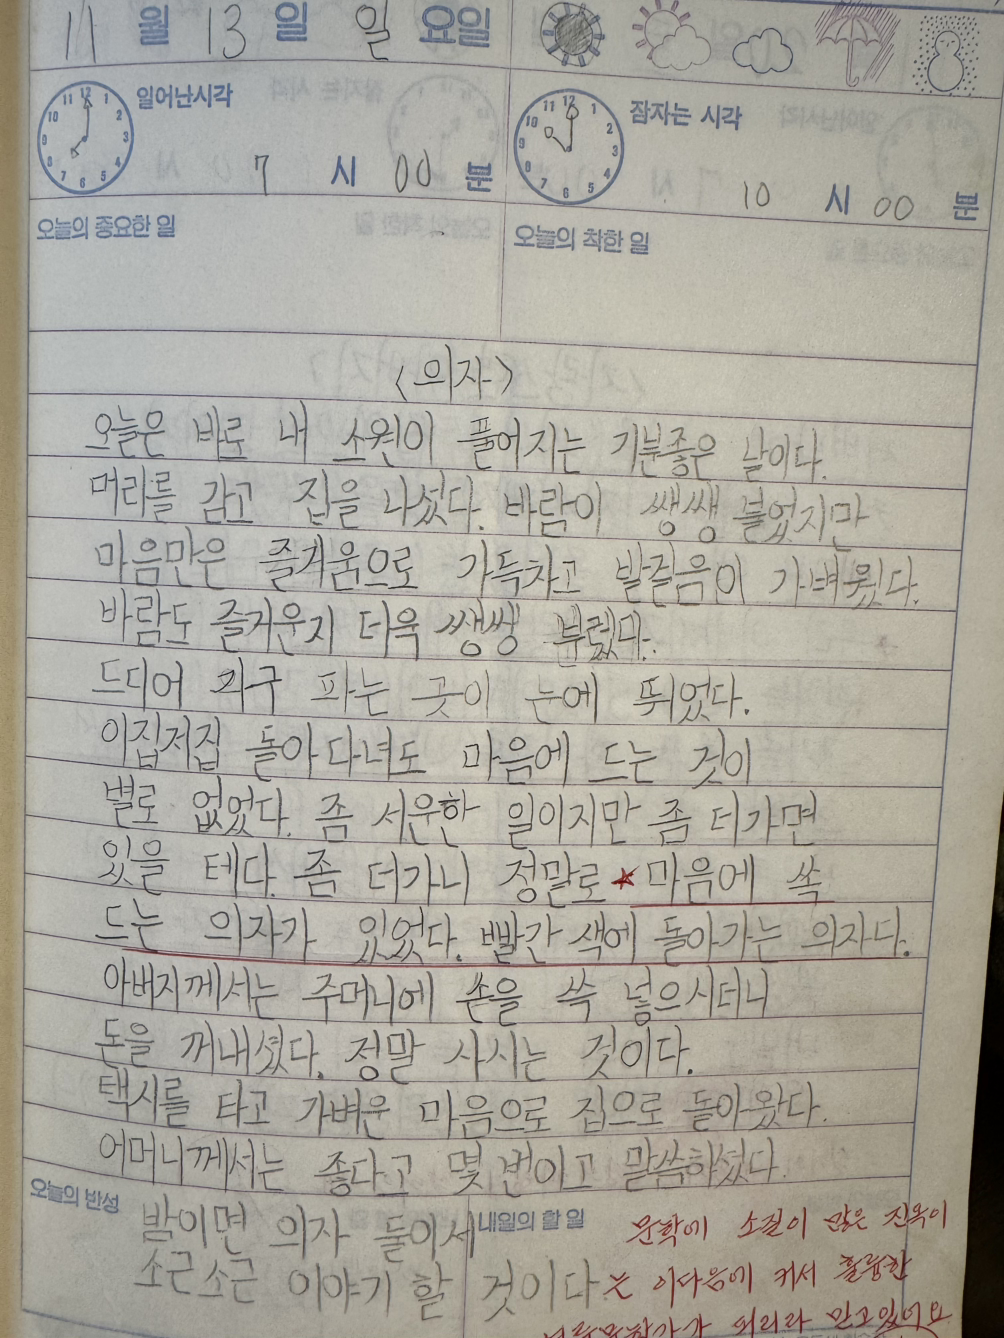 11 월 13 일 일 요일
일어난시각
7 시 00 분
잠자는 시각
10 시 00 분
오늘의 중요한 일
오늘의 착한 일
<의자>
오늘은 바로 내 소원이 풀어지는 기분좋은 날이다.
머리를 감고 집을 나섰다. 바람이 쌩쌩 불었지만
마음만은 즐거움으로 가득차고 발걸음이 가벼웠다.
바람도 즐거운지 더욱 쌩쌩 분렀다.
드디어 가구 파는 곳이 눈에 뛰었다.
이집저집 돌아다녀도 마음에 드는 것이
별로 없었다. 좀 서운한 일이지만 좀 더가면
있을 테다. 좀 더가니 정말로 마음에 쏙
드는 의자가 있었다. 빨간 색에 돌아가는 의자다.
아버지께서는 주머니에 손을 쓱 넣으시더니
돈을 꺼내셨다. 정말 사시는 것이다.
택시를 타고 가벼운 마음으로 집으로 돌아왔다.
어머니께서는 좋다고 몇 번이고 말씀하셨다.
오늘의 반성
밤이면 의자 둘이서
소근소근 이야기 할 것이다.
내일의 할 일
문학에 소질이 많은 진옥이
는 이다음에 커서 훌륭한
되리라 믿고있어요